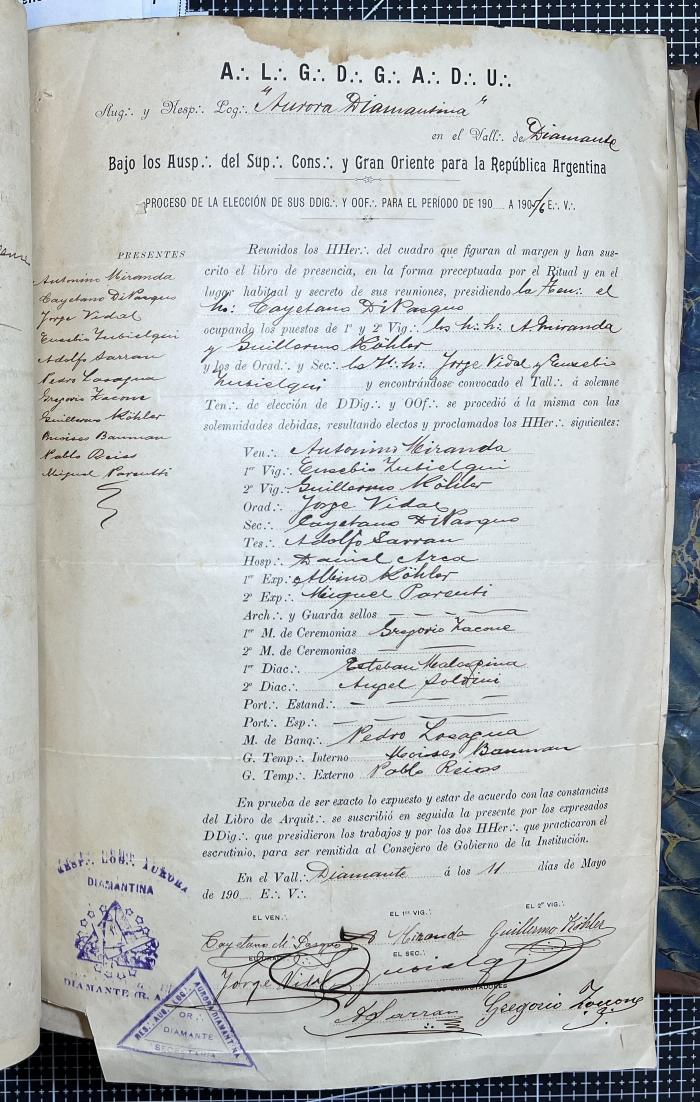 A∴ L∴ G∴ D∴ G∴ A∴ D∴ U∴
Aug∴ y Resp∴ Log∴ "Aurora Diamantina"
en el Vall∴ de Diamante
Bajo los Ausp∴ del Sup∴ Cons∴ y Gran Oriente para la República Argentina
PROCESO DE LA ELECCIÓN DE SUS DDIG∴ Y OOF∴ PARA EL PERÍODO DE 190 A 1905/6 E∴ V∴
PRESENTES
Antonino Miranda
Cayetano DiPasquo
Jorge Vidal
Eusebio Zubielqui
Adolfo Sarran
Pedro Lasagua
Gregorio Zacone
Guillermo Köhler
Moises Bauman
Pablo Reiss
Miguel Parenti
Reunidos los HHer∴ del cuadro que figuran al margen y han sus-
crito el libro de presencia, en la forma preceptuada por el Ritual y en el
lugar habitual y secreto de sus reuniones, presidiendo la Ten∴ el
h∴ Cayetano DiPasquo
ocupando los puestos de 1º y 2º Vig∴ los h∴h∴ A Miranda
y Guillermo Köhler
y los de Orad∴ y Sec∴ los H∴h∴ Jorge Vidal y Eusebio
Zubielqui y encontrándose convocado el Tall∴ á solemne
Ten∴ de elección de DDig∴ y OOf∴ se procedió á la misma con las
solemnidades debidas, resultando electos y proclamados los HHer∴ siguientes:
Ven∴ Antonino Miranda
1er Vig∴ Eusebio Zubielqui
2º Vig∴ Guillermo Köhler
Orad∴ Jorge Vidal
Sec∴ Cayetano DiPasquo
Tes∴ Adolfo Sarran
Hosp∴ Daniel Arca
1er Exp∴ Albino Köhler
2º Exp∴ Miguel Parenti
Arch∴ y Guarda sellos — — — —
1er M. de Ceremonias Gregorio Zacone
2º M. de Ceremonias — — — —
1er Diac∴ Esteban Malaspina
2º Diac∴ Angel Soldini
Port∴ Estand∴ — — — —
Port∴ Esp∴ — — — —
M. de Banq∴ Pedro Lasagua
G. Temp∴ Interno Moises Bauman
G. Temp∴ Externo Pablo Reiss
En prueba de ser exacto lo expuesto y estar de acuerdo con las constancias
del Libro de Arquit∴ se suscribió en seguida la presente por los expresados
DDig∴ que presidieron los trabajos y por los dos HHer∴ que practicaron el
escrutinio, para ser remitida al Consejero de Gobierno de la Institución.
En el Vall∴ Diamante á los 11 días de Mayo
de 190 E∴ V∴
EL VEN∴ EL 1er VIG∴ EL 2º VIG∴
Cayetano Di Pasquo Miranda Guillermo Köhler
EL SEC∴
Jorge Vidal Zubielqui
A Sarran Gregorio Zacone
RESP∴ LOG∴ AURORA
DIAMANTINA
DIAMANTE
RES∴ AUG∴ LOG∴ AURORA DIAMANTINA
OR∴
DIAMANTE
SECRETARIA